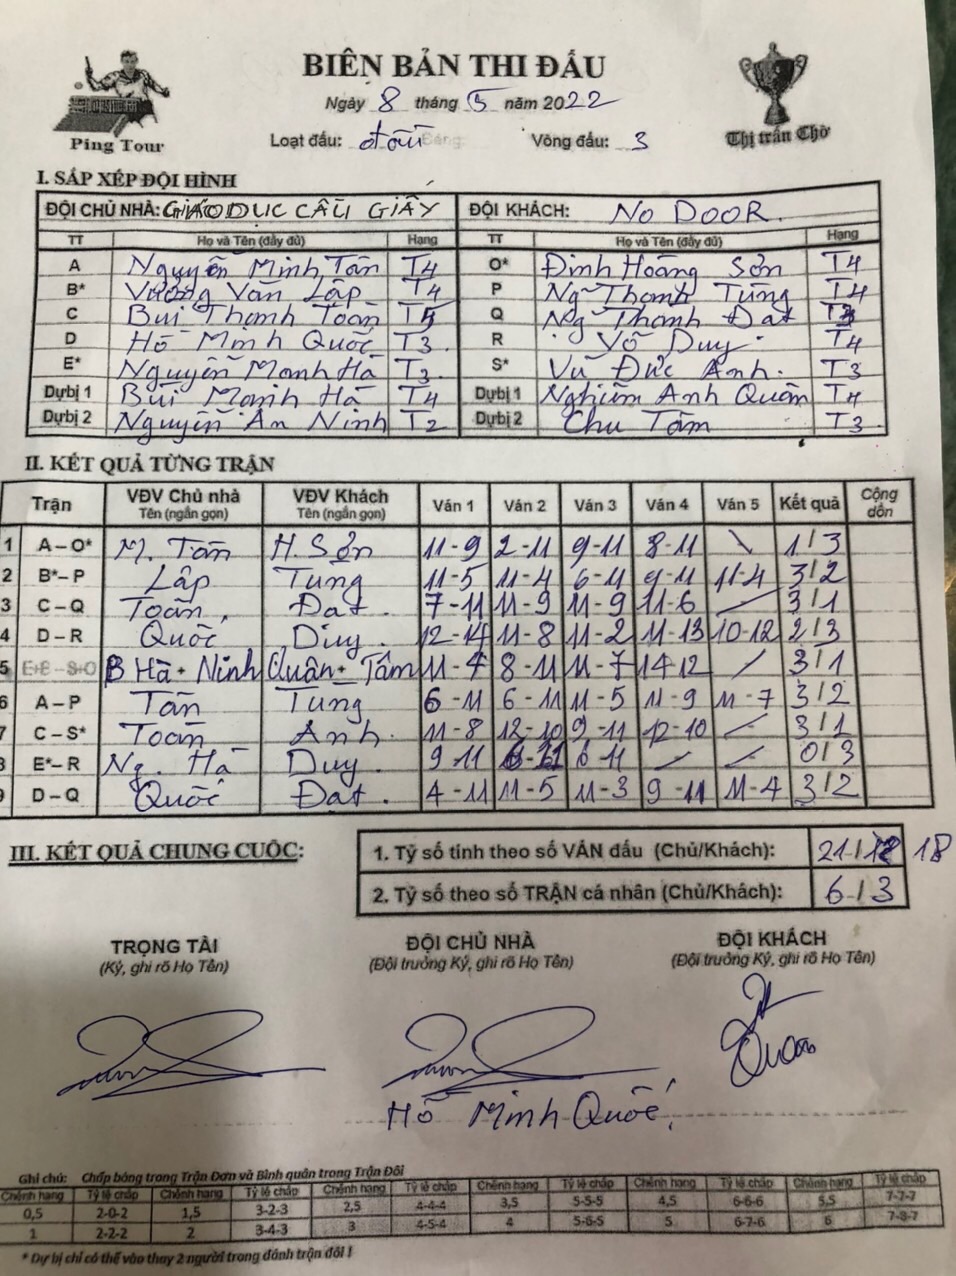 BIÊN BẢN THI ĐẤU
Ngày 8 tháng 5 năm 2022
Loạt đấu: Vòng đấu: 3
Ping Tour
Thị trấn Chờ
I. SẮP XẾP ĐỘI HÌNH
ĐỘI CHỦ NHÀ: GIÁO DỤC CẦU GIẤY ĐỘI KHÁCH: NO DOOR.
TT Họ và Tên (đầy đủ) Hạng TT Họ và Tên (đầy đủ) Hạng
A Nguyễn Minh Tân T4 O* Đinh Hoàng Sơn T4
B* Vương Văn Lập T4 P Ng Thanh Tùng T4
C Bùi Thanh Toàn T5 Q Ng Thanh Đạt
D Hồ Minh Quốc T3 R Võ Duy T4
E* Nguyễn Mạnh Hà T3 S* Vũ Đức Anh. T3
Dự bị 1 Bùi Mạnh Hà T4 Dự bị 1 Nghiêm Anh Quân T4
Dự bị 2 Nguyễn An Ninh T2 Dự bị 2 Chu Tâm T3
II. KẾT QUẢ TỪNG TRẬN
Trận VĐV Chủ nhà Tên (ngắn gọn) VĐV Khách Tên (ngắn gọn) Ván 1 Ván 2 Ván 3 Ván 4 Ván 5 Kết quả Cộng dồn
1 A – O* M. Tân H. Sơn 11-9 2-11 9-11 8-11 \ 1/3
2 B* – P Lập Tùng 11-5 11-4 6-11 9-11 11-4 3/2
3 C – Q Toàn. Đạt. 7-11 11-9 11-9 11-6 / 3/1
4 D – R Quốc Duy 12-14 11-8 11-2 11-13 10-12 2/3
5 B Hà + Ninh Quân + Tâm 11-7 8-11 11-7 14-12 / 3/1
6 A – P Tân Tùng 6-11 6-11 11-5 11-9 11-7 3/2
7 C – S* Toàn Anh. 11-8 12-10 9-11 12-10 / 3/1
8 E* – R Ng. Hà Duy. 9-11 6-11 / / 0/3
9 D – Q Quốc Đạt. 4-11 11-5 11-3 9-11 11-4 3/2
III. KẾT QUẢ CHUNG CUỘC:
1. Tỷ số tính theo số VÁN đấu (Chủ/Khách): 21/ 18
2. Tỷ số theo số TRẬN cá nhân (Chủ/Khách): 6/3
TRỌNG TÀI ĐỘI CHỦ NHÀ ĐỘI KHÁCH
(Ký, ghi rõ Họ Tên) (Đội trưởng Ký, ghi rõ Họ Tên) (Đội trưởng Ký, ghi rõ Họ Tên)
Hồ Minh Quốc
Ghi chú: Chấp bóng trong Trận Đơn và Bình quân trong Trận Đôi
Chênh hạng Tỷ lệ chấp Chênh hạng Tỷ lệ chấp Chênh hạng Tỷ lệ chấp Chênh hạng Tỷ lệ chấp Chênh hạng Tỷ lệ chấp Chênh hạng Tỷ lệ chấp
0,5 2-0-2 1,5 3-2-3 2,5 4-4-4 3,5 5-5-5 4,5 6-6-6 5,5 7-7-7
1 2-2-2 2 3-4-3 3 4-5-4 4 5-6-5 5 6-7-6 6 7-8-7
* Dự bị chỉ có thể vào thay 2 người trong đánh trận đôi !